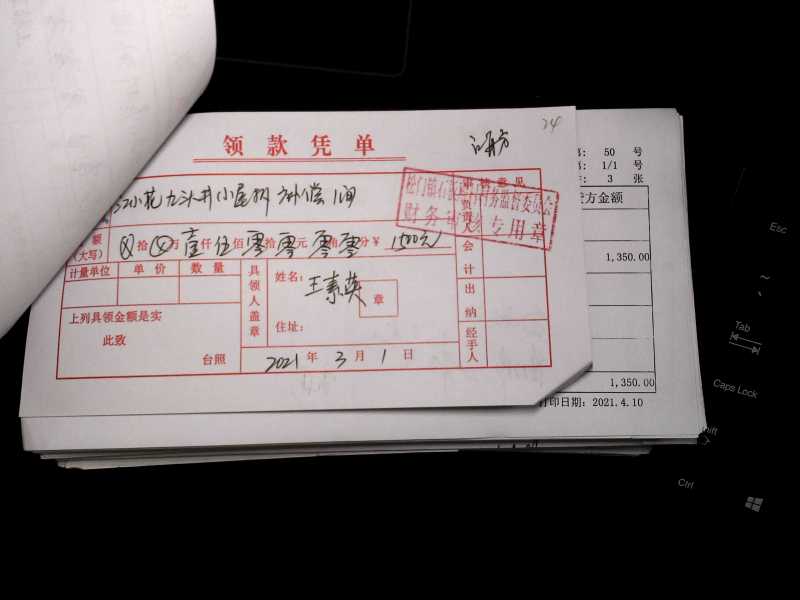 24
领款凭单
九头井小屋 补偿 1间
审核意见
财务 专用章
额
(大写) 拾 万壹仟伍佰零拾零元零角零分￥1500元
计量单位 单价 数量
具领人盖章
姓名: 王素英
章
住址:
会计
出纳
经手人
上列具领金额是实
此致
台照
2021年3月1日
50 号
1/1 号
3 张
贷方金额
1,350.00
1,350.00
打印日期: 2021.4.10
Esc
~
Tab
Caps Lock
Shift
Ctrl